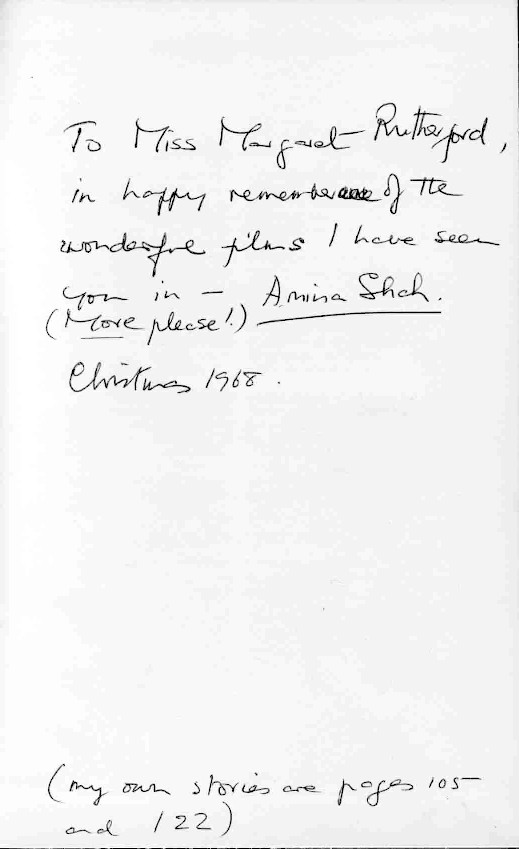 To Miss Margaret Rutherford,
in happy remembrance of the
wonderful films I have seen
you in — Amina Shah.
(More please!)
Christmas 1968.
(my own stories are pages 105
and 122)